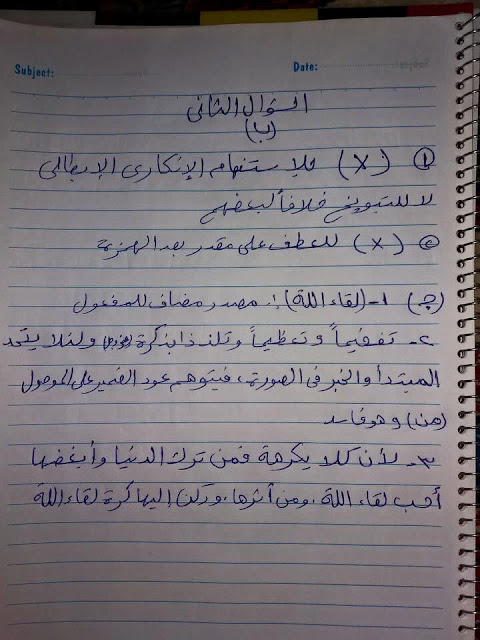 Subject:
Date:
السؤال الثانى
(ب)
① (X) للاستفهام الإنكارى الإبطالى
لا للتوبيخ خلافاً لبعضهم
② (X) للعطف على مقدر بعد الهمزة
(جـ) ١- (لقاء الله): مصدر مضاف للمفعول
٢- تفخيماً وتعظيماً وتلذذا بذكرة ولئلا يتحد
المبتدأ والخبر فى الصورة، فيتوهم عود الضمير على الموصول
(من) وهو فاسد
٣- لأن كلا يكرهة فمن ترك الدنيا وأبغضها
أحب لقاء اللة، ومن أثرها، وركن إليها كرة لقاء اللة